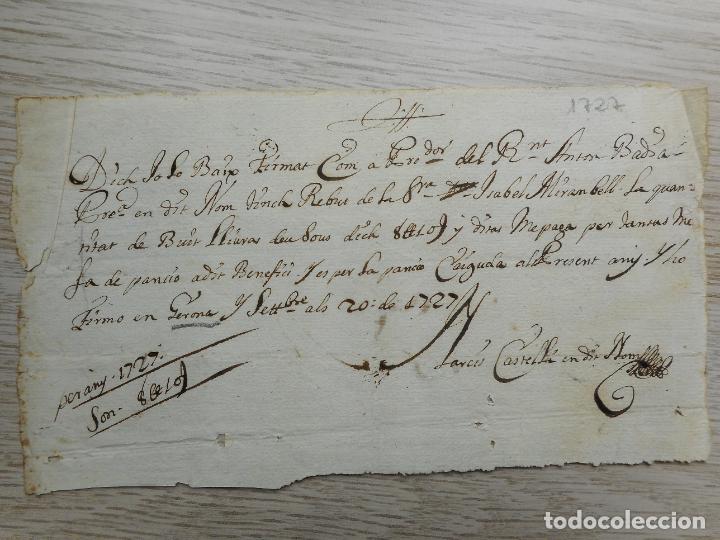 1727
Dich Jo lo Baix firmat Com a Pre.dor del R.nt Anton Badia
Pre.e en dit Nom tinch Rebut de la S.ra Isabel Mirambell la quan-
titat de Vuit lliuras deu sous dich 8 ll 10 s y ditas Me paga per tantas Me
fa de pancio a dit Benefici y es per la pancio Caiguda al Present any y ho
firmo en Gerona y Settbre als 20: de 1727
Narcis Castelló en dit Nom
per any. 1727.
Son. 8 ll 10 s
todocoleccion.net